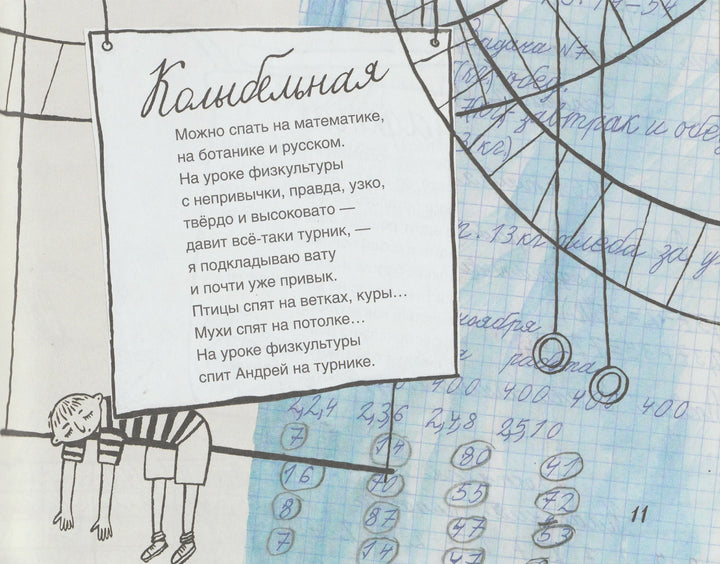 Колыбельная
Можно спать на математике,
на ботанике и русском.
На уроке физкультуры
с непривычки, правда, узко,
твёрдо и высоковато —
давит всё-таки турник, —
я подкладываю вату
и почти уже привык.
Птицы спят на ветках, куры…
Мухи спят на потолке…
На уроке физкультуры
спит Андрей на турнике.
Задача №7
обед.
завтрак и обед
13кг хлеба за у
ноября
работа
400 400 400 400
2,2,4 2,3,6 2,4,8 2,5,10
7 14 80 41
16 70 55 72
8 87 47 53
7 14 47
11